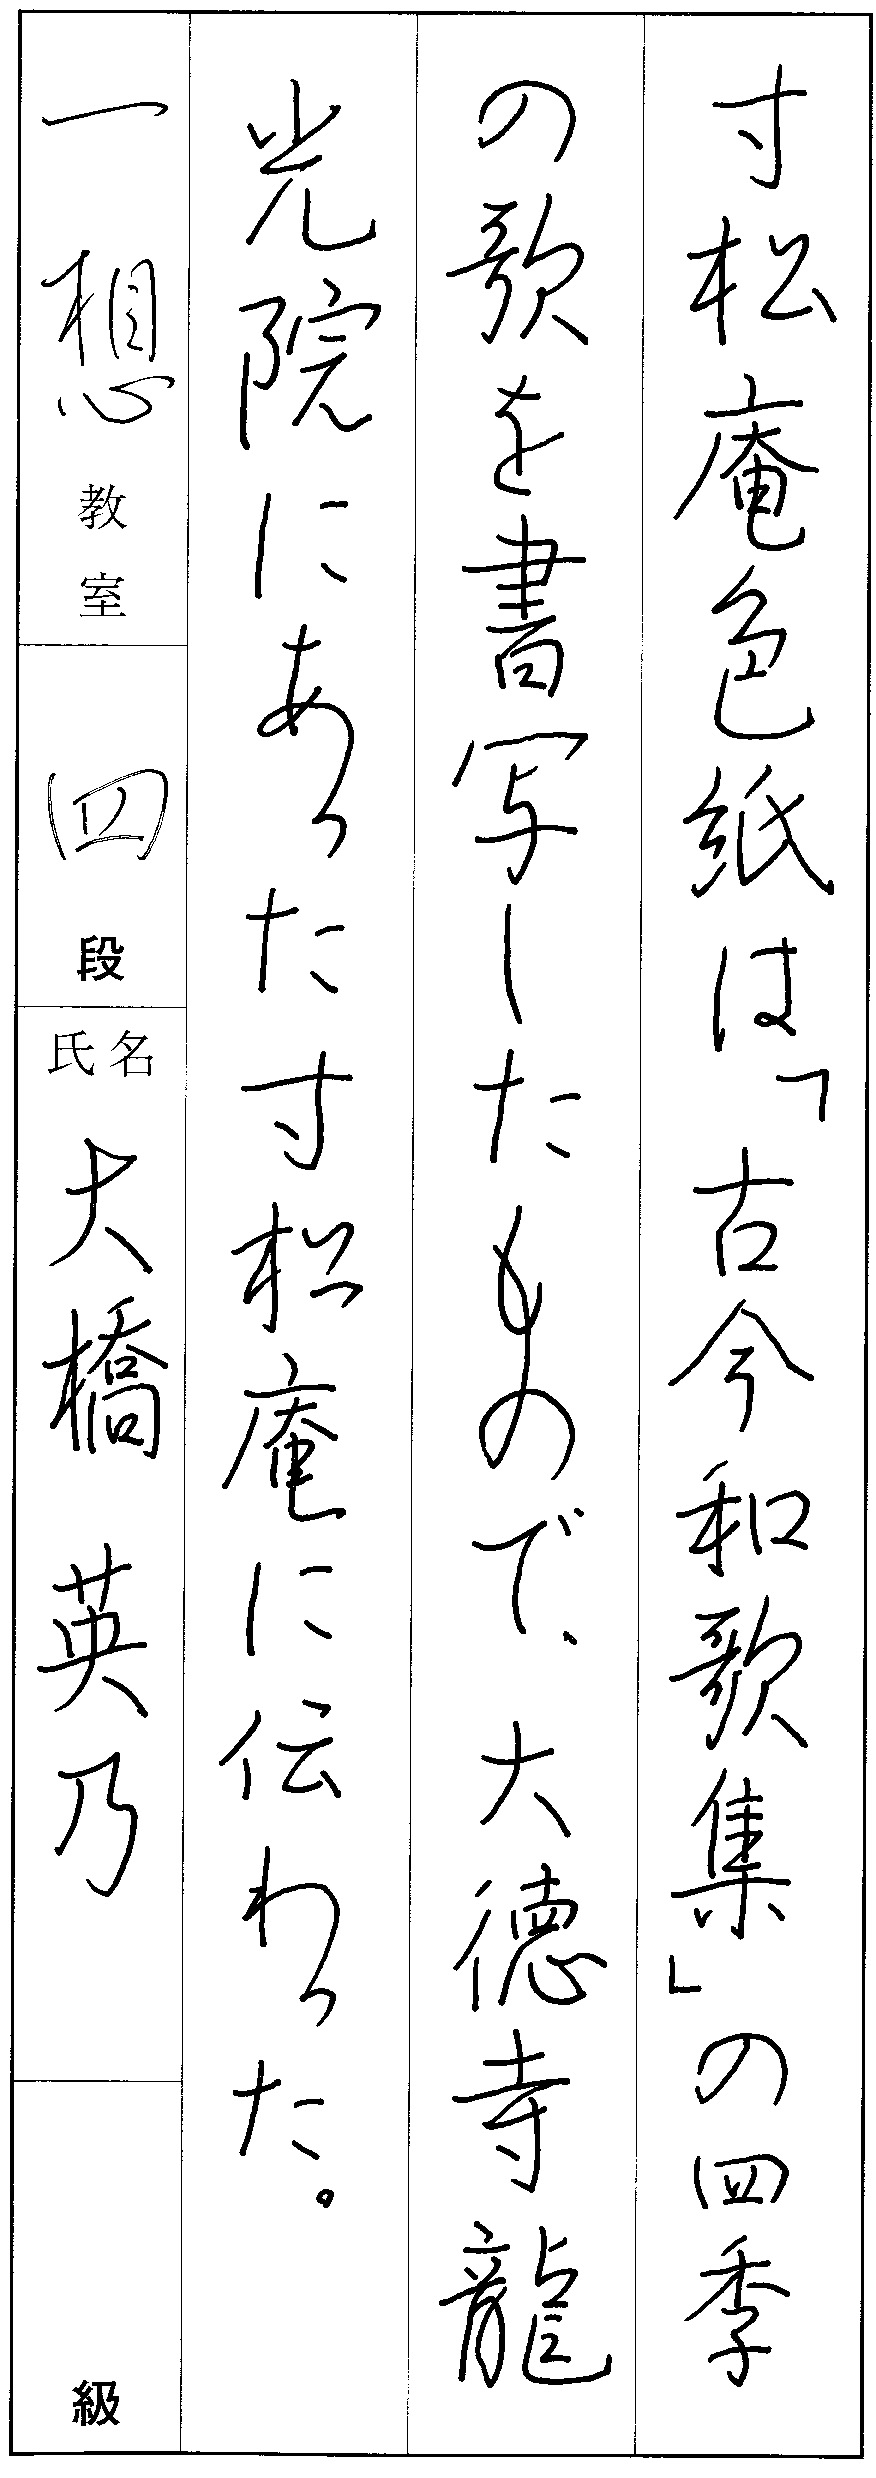 寸松庵色紙は「古今和歌集」の四季
の歌を書写したもので、大徳寺龍
光院にあった寸松庵に伝わった。
一想教室
四段
氏名
大橋英乃
級